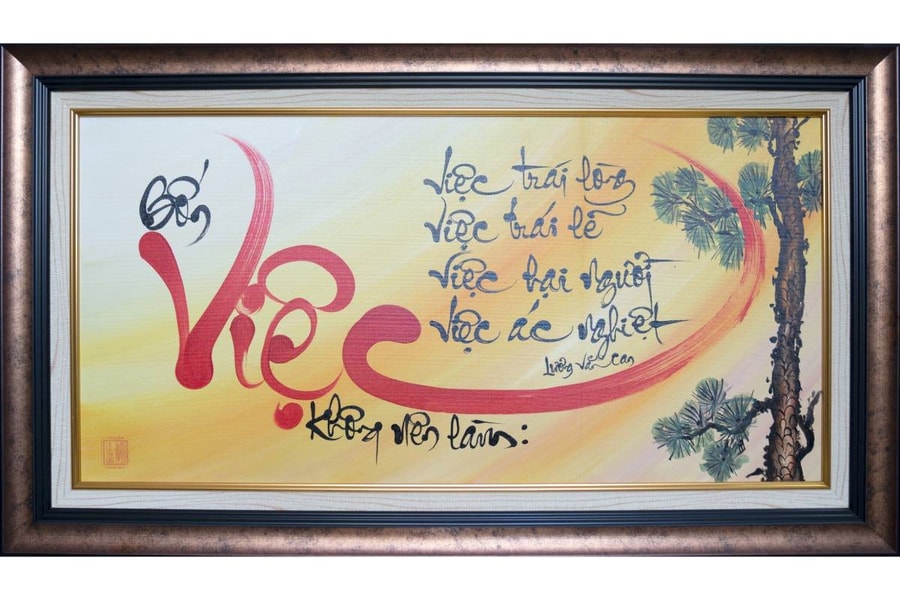 Bốn
Việc
không nên làm:
Việc trái lòng
Việc trái lẽ
Việc hại người
Việc ác nghiệt
Lương Văn Can